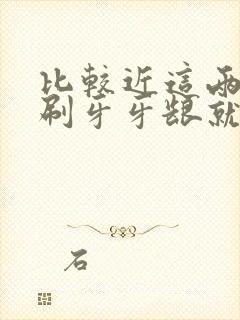 比較近這兩
刷牙牙龈就
石